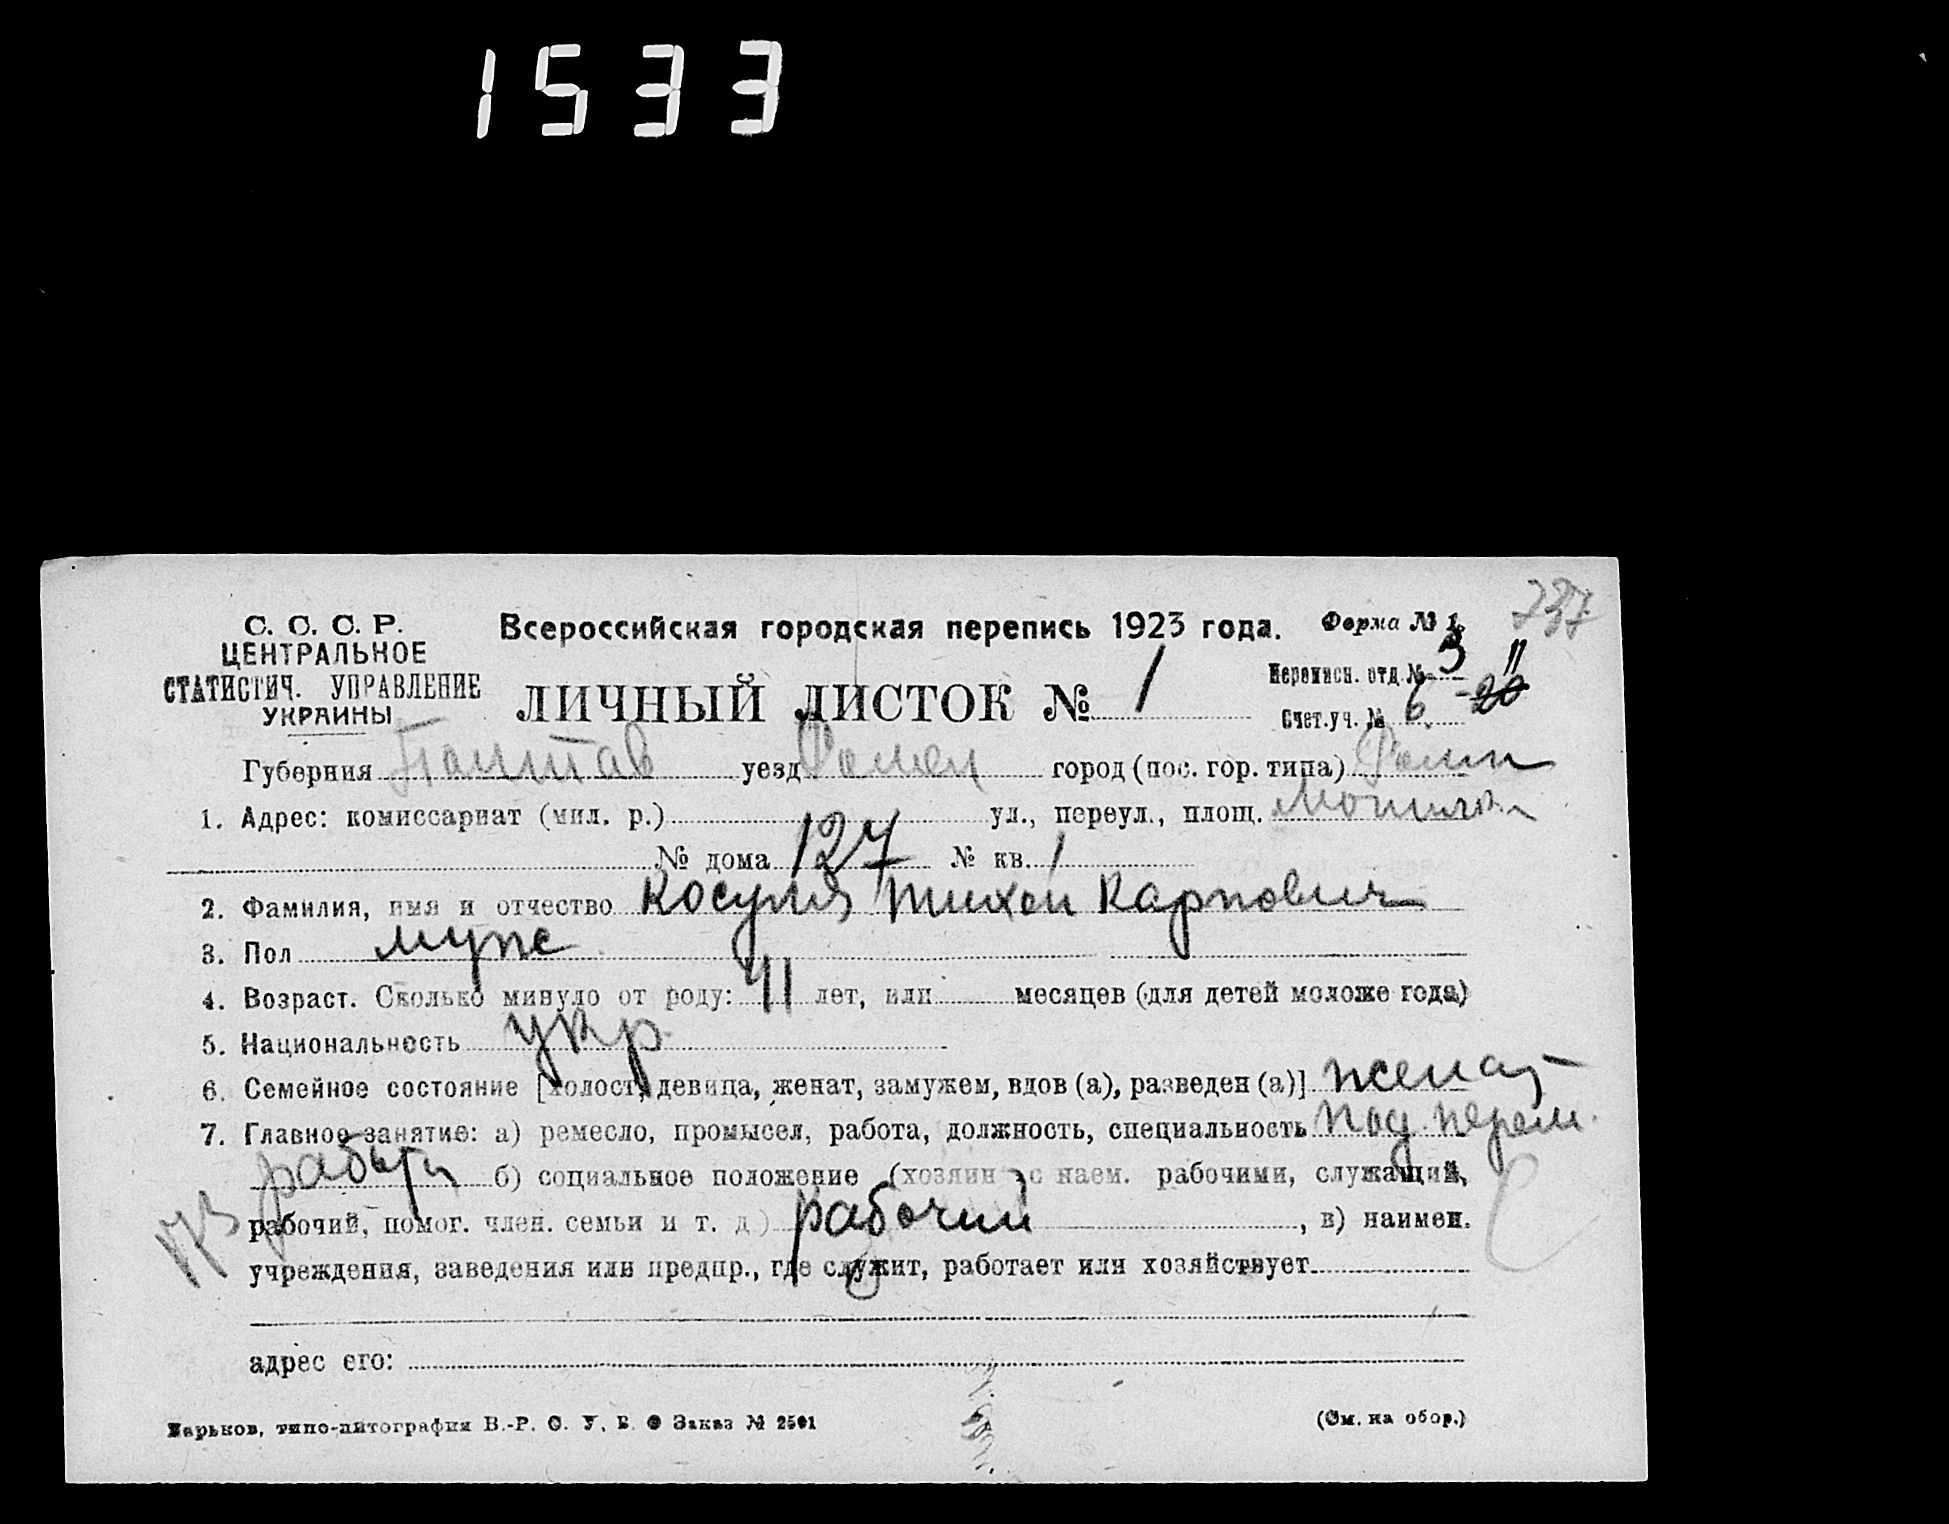 1533
737
С. С. С. Р.
ЦЕНТРАЛЬНОЕ
СТАТИСТИЧ. УПРАВЛЕНИЕ
УКРАИНЫ
Всероссийская городская перепись 1923 года.
Форма № 1.
ЛИЧНЫЙ ЛИСТОК № 1
Переписн. отд. № 3 11
Счет. уч. № 6 - 20
Губерния Полтав уезд Ромен город (пос. гор. типа) Ромн
1. Адрес: комиссариат (мил. р.) ул., переул., площ.
№ дома 127 № кв. 1
2. Фамилия, имя и отчество Тихон Карпович
3. Пол муж
4. Возраст. Сколько минуло от роду: 41 лет, или месяцев (для детей моложе года)
5. Национальность укр.
6. Семейное состояние [холост, девица, женат, замужем, вдов (а), разведен (а)] женат
7. Главное занятие: а) ремесло, промысел, работа, должность, специальность под.
работы б) социальное положение (хозяин с наем. рабочими, служащий,
рабочий, помог. член. семьи и т. д.) рабочий, в) наимен.
учреждения, заведения или предпр., где служит, работает или хозяйствует
адрес его:
Харьков, типо-литография В.-Р. О. У. В. О Заказ № 2501
(См. на обор.)